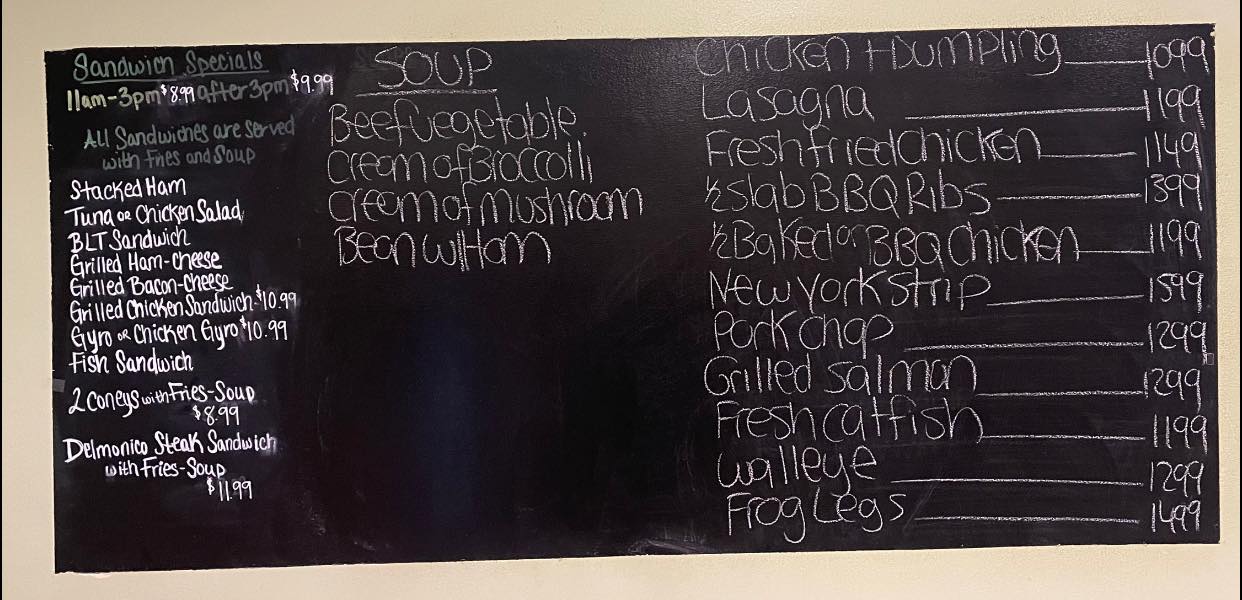 Sandwich Specials
11am-3pm $8.99 after 3pm $9.99
All Sandwiches are served
with Fries and Soup
Stacked Ham
Tuna or Chicken Salad
BLT Sandwich
Grilled Ham-cheese
Grilled Bacon-cheese
Grilled Chicken Sandwich-$10.99
Gyro or Chicken Gyro $10.99
Fish Sandwich
2 coneys with Fries-Soup
$8.99
Delmonico Steak Sandwich
with Fries-Soup
$11.99
SOUP
Beef Vegetable
Cream of Broccolli
Cream of mushroom
Bean w/Ham
Chicken + Dumpling 1099
Lasagna 1199
Fresh fried Chicken 1149
½ slab BBQ Ribs 1399
½ Baked or BBQ Chicken 1199
New york strip 1599
Pork Chop 1299
Grilled salmon 1299
Fresh catfish 1199
walleye 1299
Frog Legs 1499